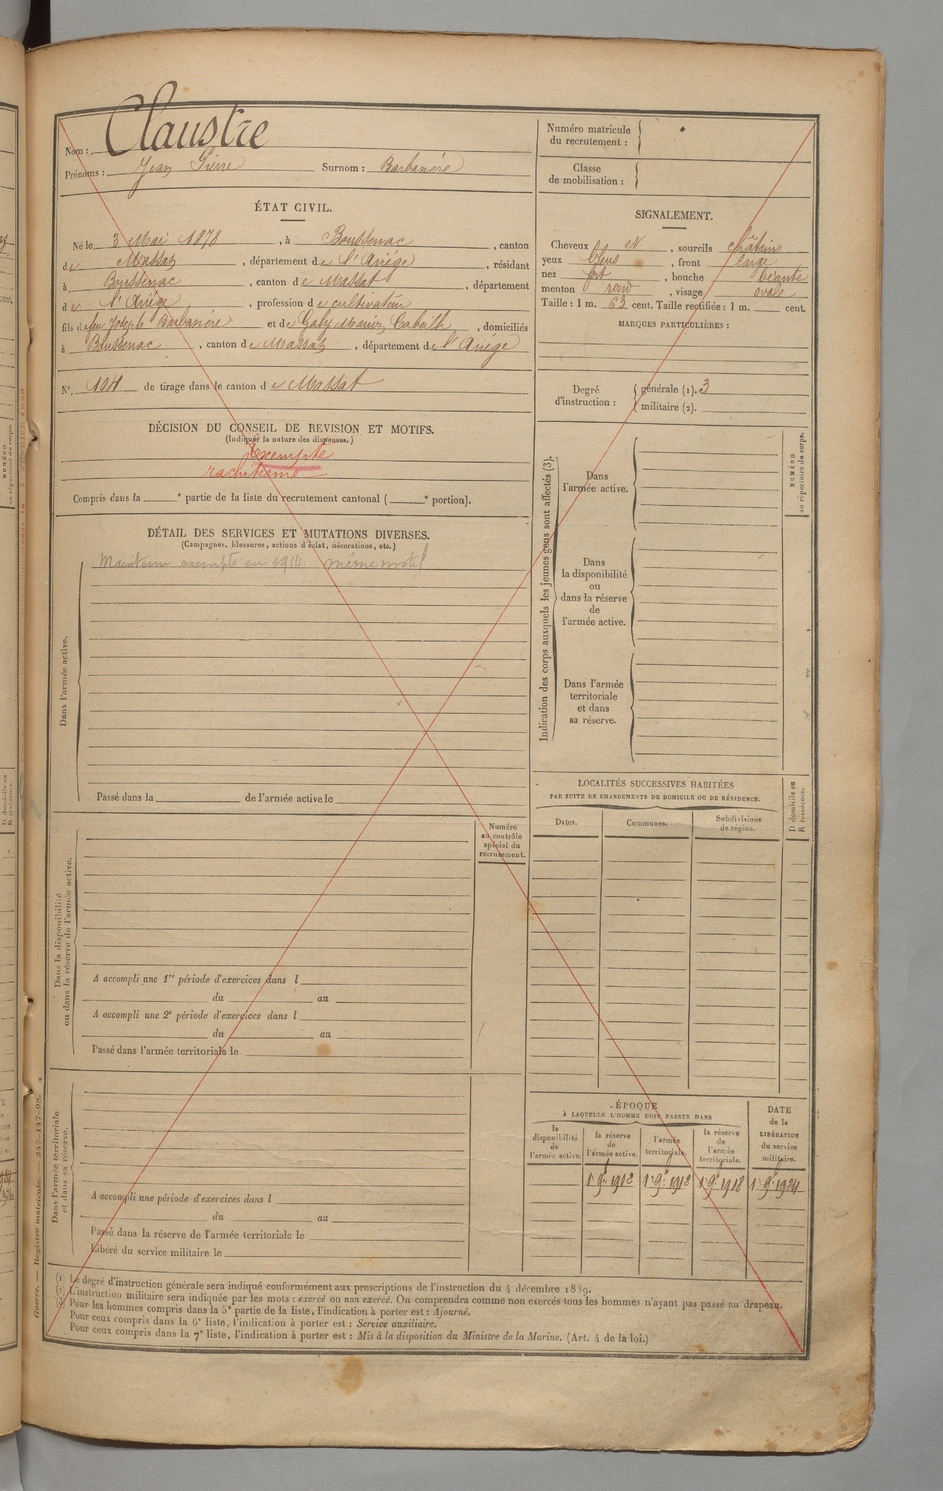 Nom : Claustre
Prénoms : Jean Pierre Surnom : Barbanère
ÉTAT CIVIL.
Né le 3 Mai 1878, à Boussenac, canton
de Massat, département de l'Ariège, résidant
à Boussenac, canton de Massat, département
de l'Ariège, profession de cultivateur
fils de feu Joseph Barbanère et de Galy Marie, domiciliés
à Boussenac, canton de Massat, département de l'Ariège
N° 104 de tirage dans le canton de Massat
DÉCISION DU CONSEIL DE REVISION ET MOTIFS.
(Indiquer la nature des dispenses.)
Exempté
rachitisme
Compris dans la e partie de la liste du recrutement cantonal ( e portion).
DÉTAIL DES SERVICES ET MUTATIONS DIVERSES.
(Campagnes, blessures, actions d'éclat, décorations, etc.)
Maintenu exempté en 1914 même motif
Dans l'armée active.
Passé dans la de l'armée active le
Numéro
au contrôle
spécial du
recrutement.
Dans la disponibilité
ou dans la réserve de l'armée active.
A accompli une 1re période d'exercices dans l
du au
A accompli une 2e période d'exercices dans l
du au
Passé dans l'armée territoriale le
Dans l'armée territoriale
et dans sa réserve.
A accompli une période d'exercices dans l
du au
Passé dans la réserve de l'armée territoriale le
Libéré du service militaire le
Numéro matricule
du recrutement :
Classe
de mobilisation :
SIGNALEMENT.
Cheveux et, sourcils châtins
yeux bleus, front large
nez fort, bouche béante
menton rond, visage ovale
Taille : 1 m. 63 cent. Taille rectifiée : 1 m. cent.
MARQUES PARTICULIÈRES :
Degré
d'instruction :
générale (1). 3
militaire (2).
Indication des corps auxquels les jeunes gens sont affectés (3).
Dans
l'armée active.
Dans
la disponibilité
ou
dans la réserve
de
l'armée active.
Dans l'armée
territoriale
et dans
sa réserve.
NUMÉRO
au répertoire du corps.
LOCALITÉS SUCCESSIVES HABITÉES
PAR SUITE DE CHANGEMENTS DE DOMICILE OU DE RÉSIDENCE.
Dates. Communes. Subdivisions
de région.
D domicile ou
R résidence.
ÉPOQUE
À LAQUELLE L'HOMME DOIT PASSER DANS
la
disponibilité
de
l'armée active.
la réserve
de
l'armée active.
l'armée
territoriale.
la réserve
de
l'armée
territoriale.
DATE
de la
LIBÉRATION
du service
militaire.
1912 1918 1924
Guerre. — Registre matricule. — 247-147-98.
(1) Le degré d'instruction générale sera indiqué conformément aux prescriptions de l'instruction du 4 décembre 1889.
(2) L'instruction militaire sera indiquée par les mots : exercé ou non exercé. On comprendra comme non exercés tous les hommes n'ayant pas passé au drapeau.
(3) Pour les hommes compris dans la 5e partie de la liste, l'indication à porter est : Ajourné.
Pour ceux compris dans la 6e liste, l'indication à porter est : Service auxiliaire.
Pour ceux compris dans la 7e liste, l'indication à porter est : Mis à la disposition du Ministre de la Marine. (Art. 4 de la loi.)